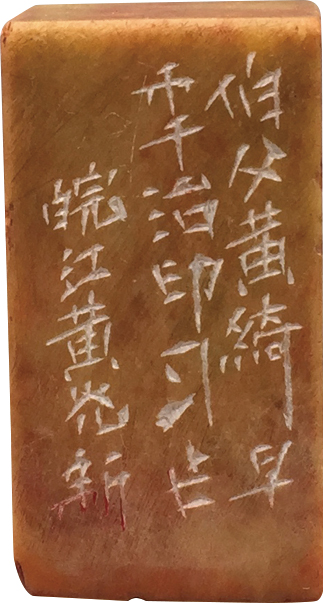 伯父黄綺早
年治印
皖江黄光新